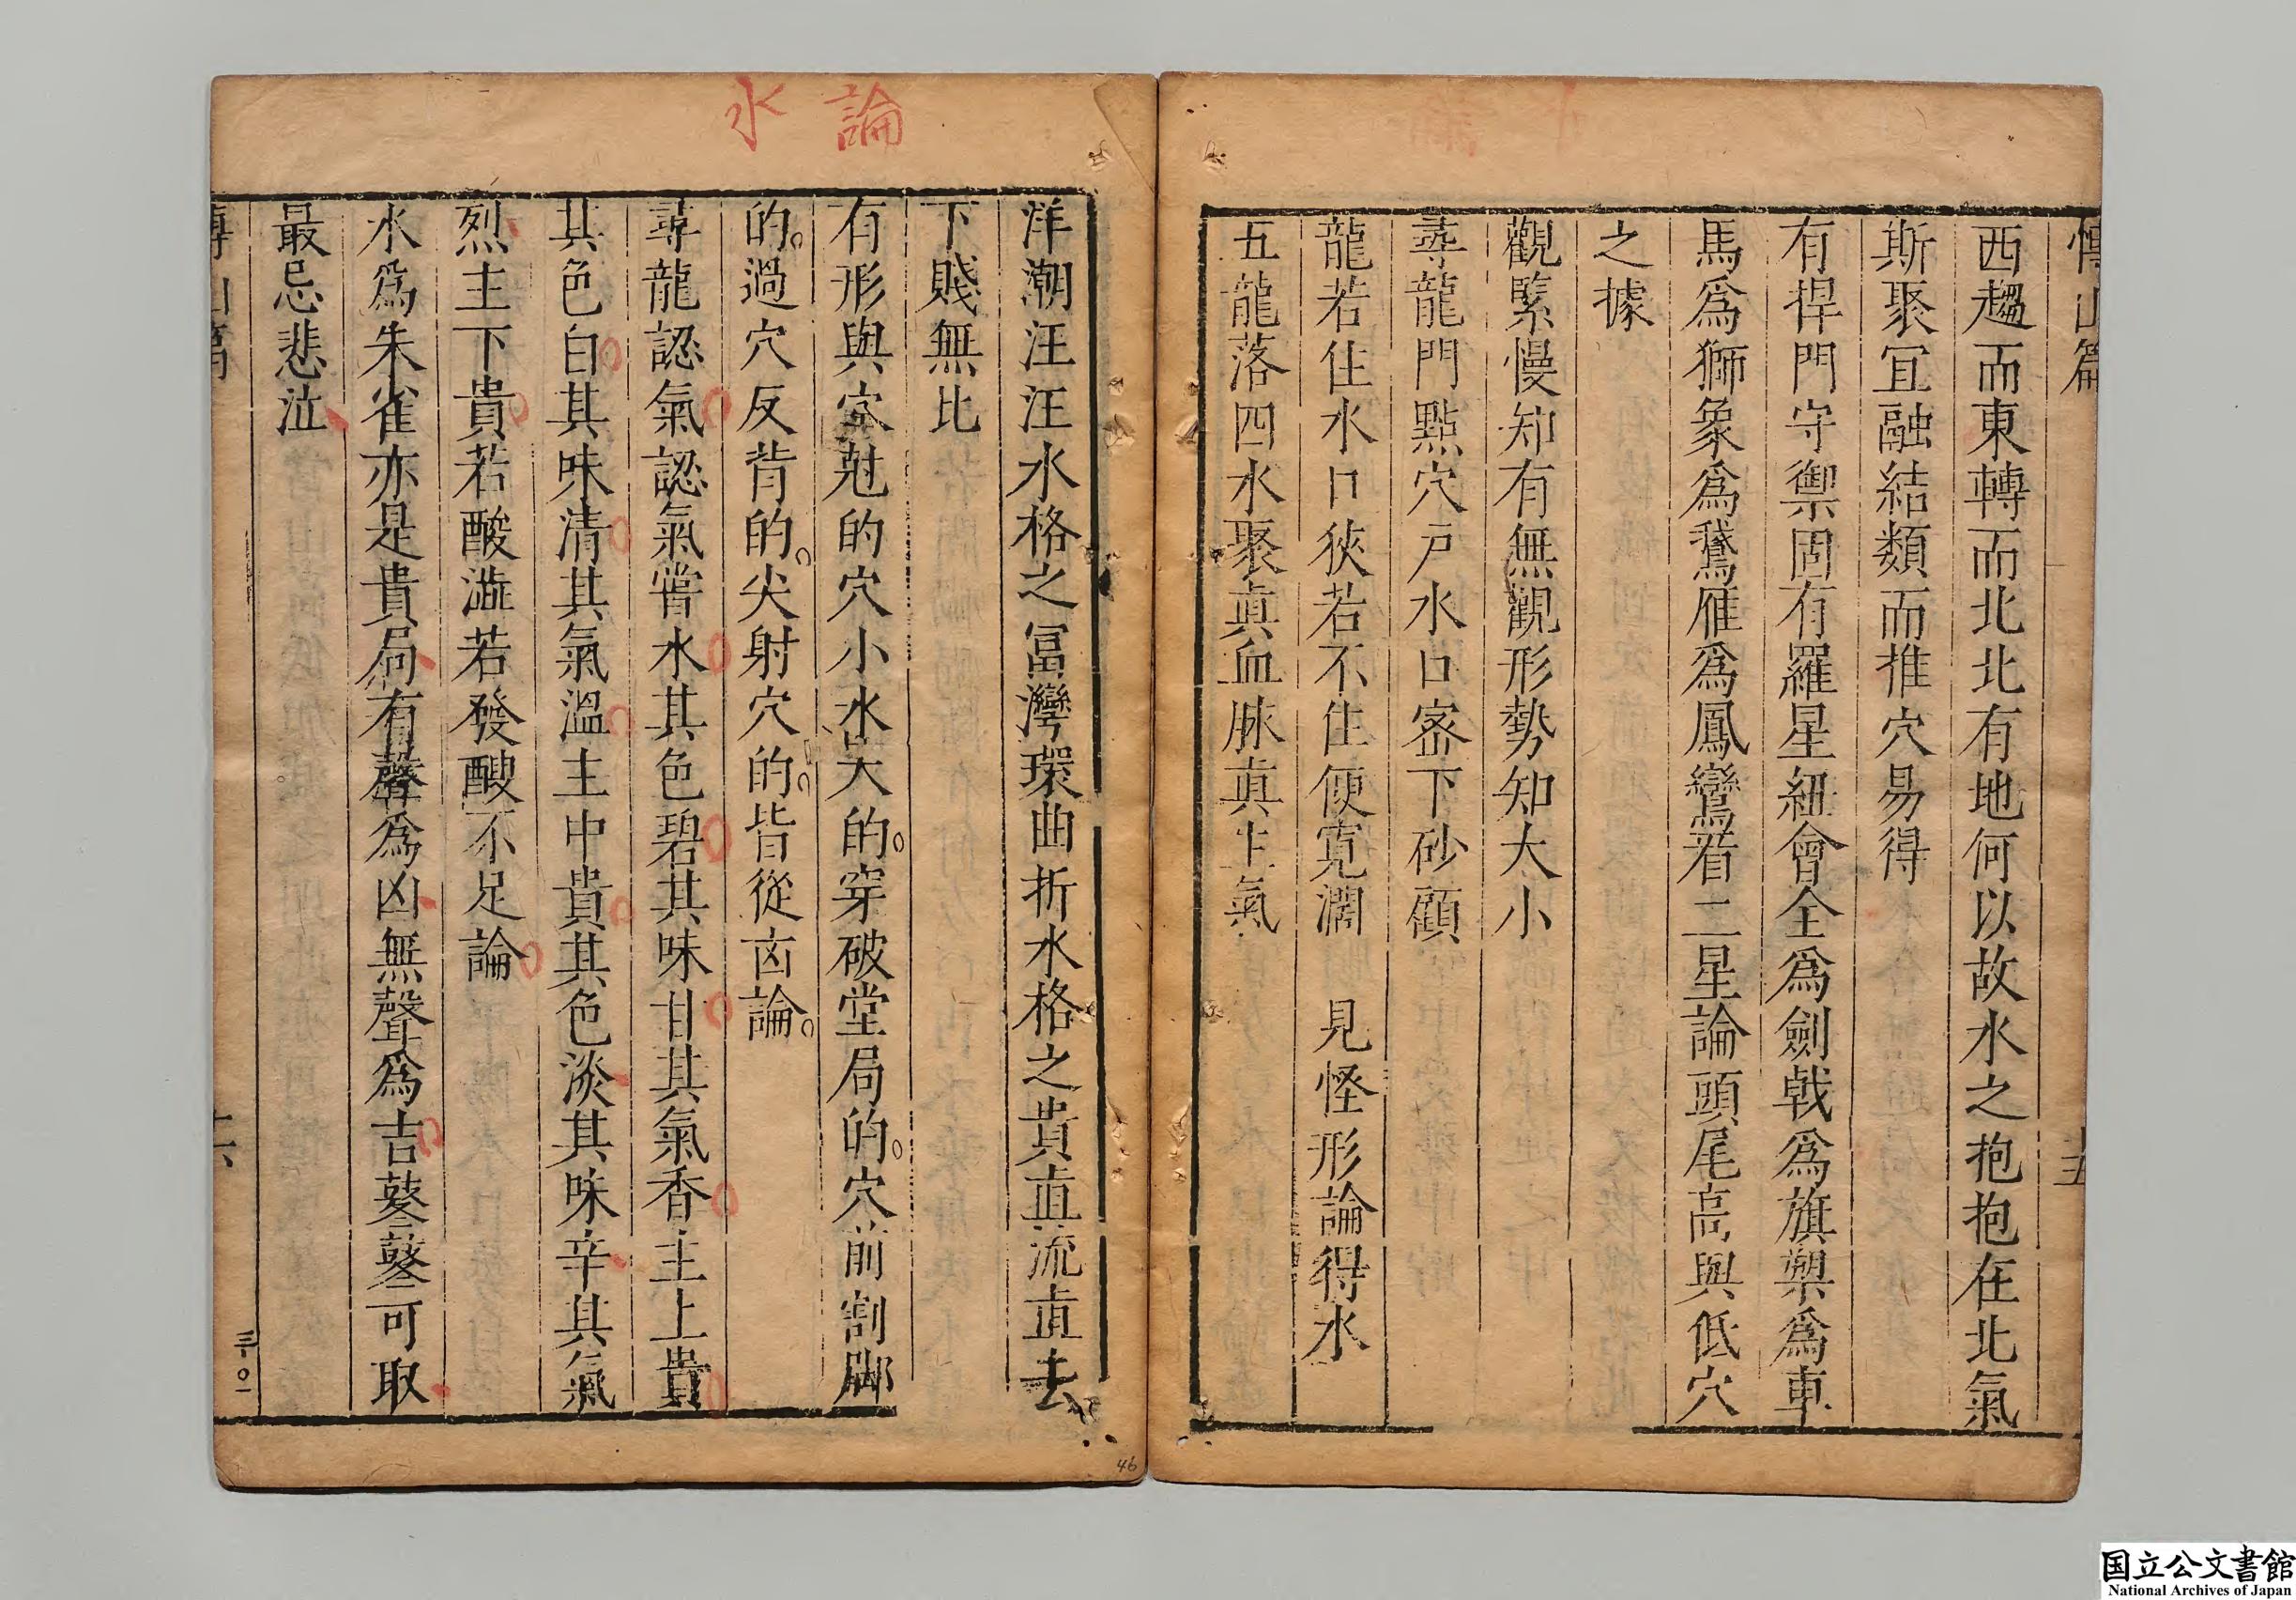 博山篇
十五
西趨而東轉而北北有地何以故水之抱抱在北氣
斯聚宜融結類而推穴易得
有捍門守禦固有羅星紐會全為劍戟為旗槊為車
馬為獅象為鵞雁為鳳鸞看二星論頭尾高與低穴
之據
觀緊慢知有無觀形勢知大小
尋龍門點穴戶水口密下砂顧
龍若住水口狹若不住便寬濶 見怪形論得水
五龍落四水聚眞血脉眞生氣
論水
洋潮汪汪水格之冨灣環曲折水格之貴直流直去
下賤無比
有形與穴尅的穴小水大的穿破堂局的穴前割脚
的過穴反背的尖射穴的皆從凶論
尋龍認氣認氣嘗水其色碧其味甘其氣香主上貴
其色白其味清其氣溫主中貴其色淡其味辛其氣
烈主下貴若酸澁若發餿不足論
水爲朱雀亦是貴局有聲爲凶無聲爲吉鼕鼕可取
最忌悲泣
博山篇
十六
三〇一
46
国立公文書館
National Archives of Japan